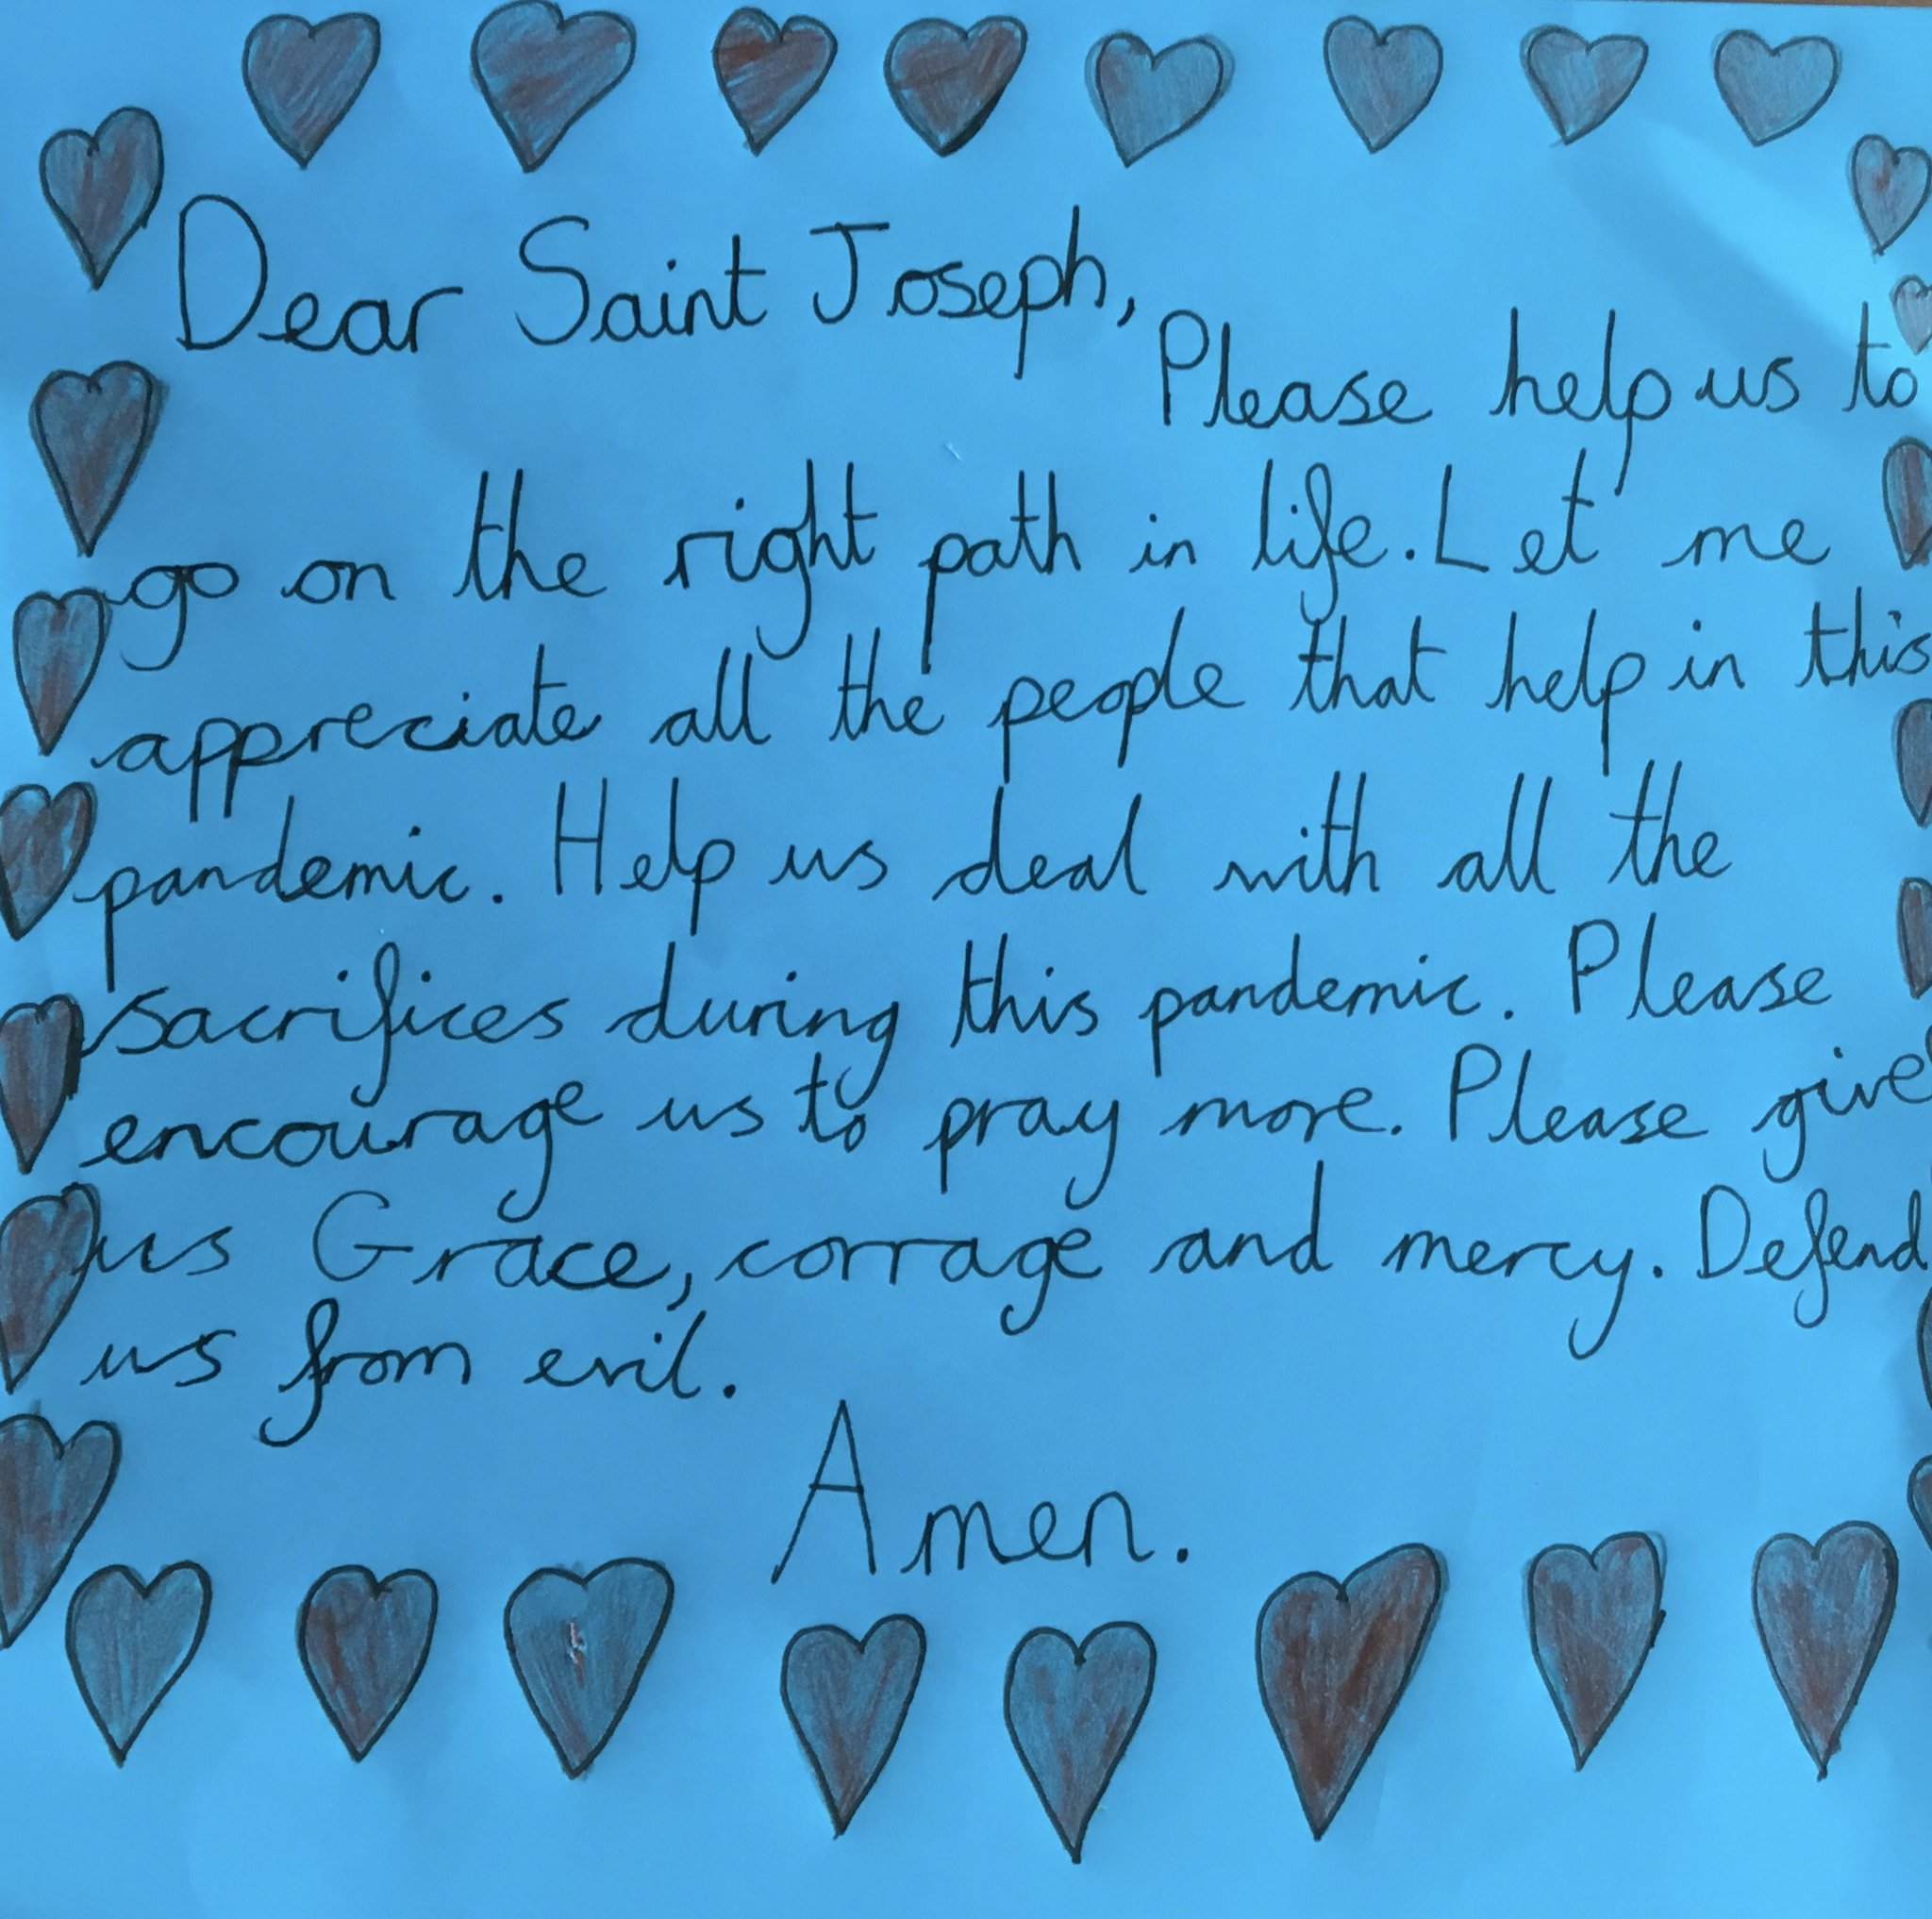 Dear Saint Joseph,
Please help us to
go on the right path in life. Let me
appreciate all the people that help in this
pandemic. Help us deal with all the
sacrifices during this pandemic. Please
encourage us to pray more. Please give
us Grace, corrage and mercy. Defend
us from evil.
Amen.